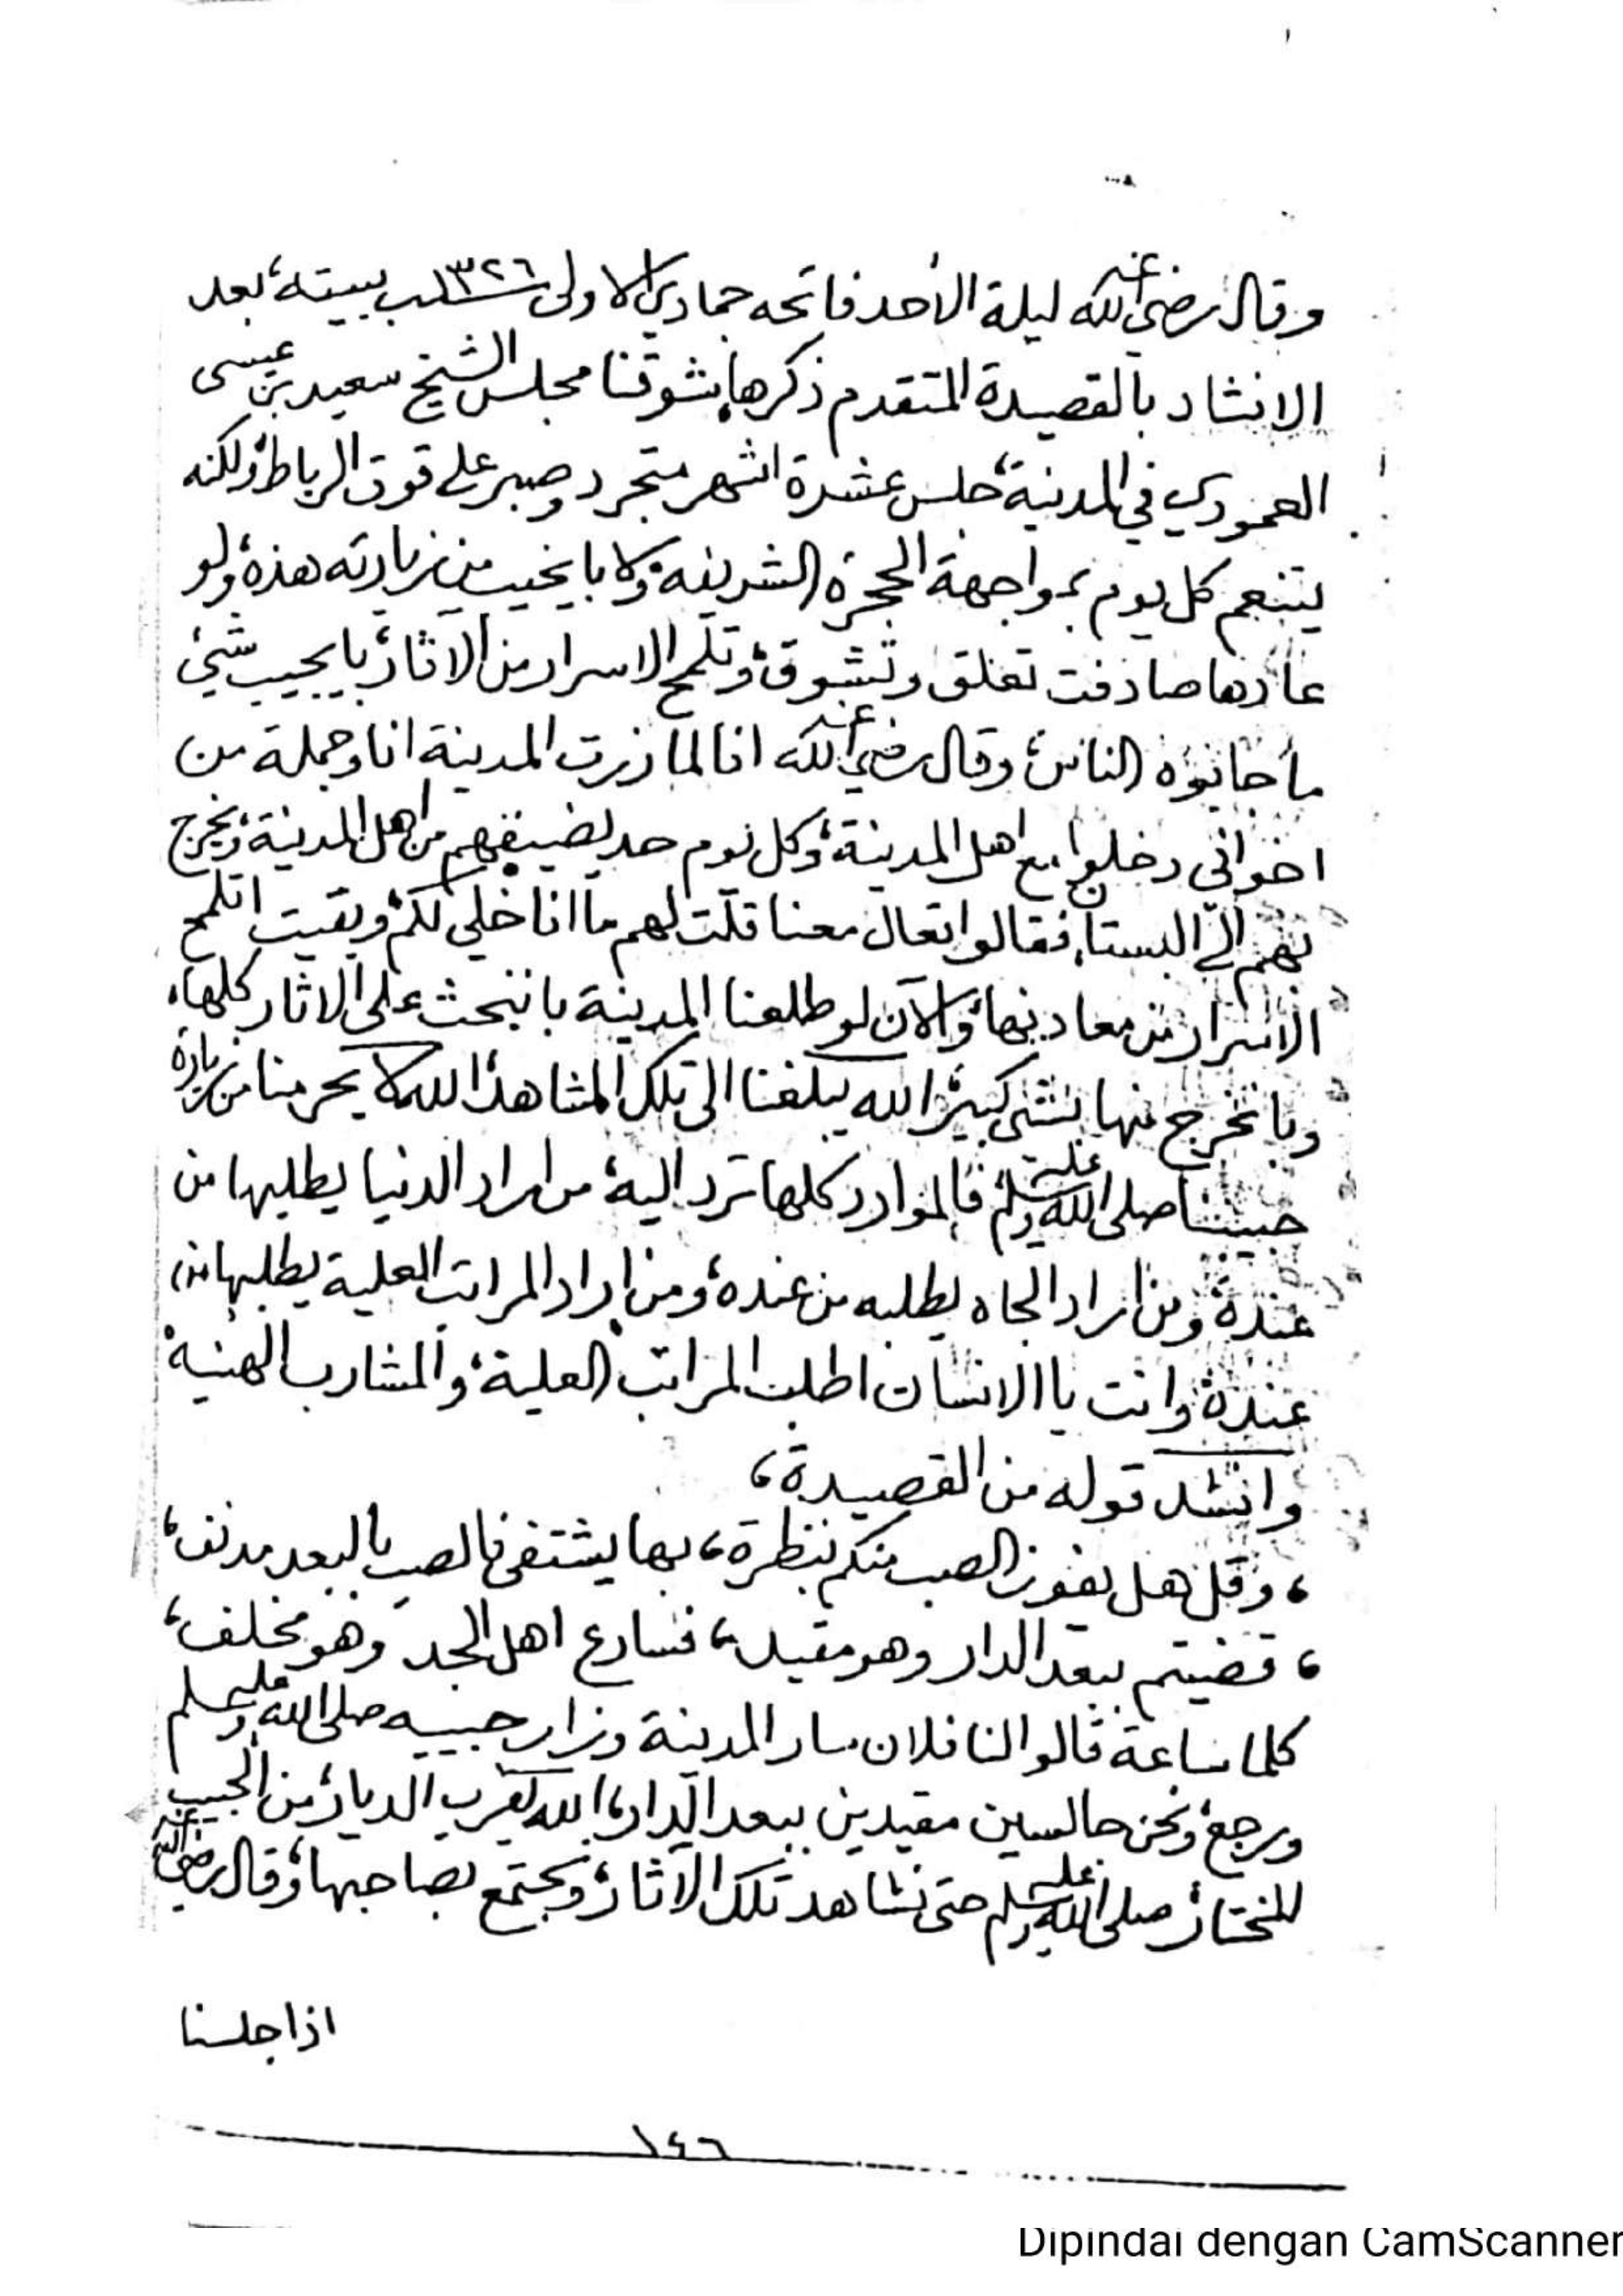 وقال رضي الله عنه ليلة الأحد فاتحه جمادي الاولى سنة ١٣٢٦ ببيته، بعد
الانشاد بالقصيدة المتقدم ذكرها، شوقنا مجلس الشيخ سعيد بن عيسى
العمودي في المدينة، جلس عشرة اشهر متجرد وصبر على قوت الرباط، ولكنه
يتنعم كل يوم بمواجهة الحجرة الشريفة، ولا با يخيب من زيارته هذه، ولو
عادها صادفت تعلق وتشوق، وتلمح الاسرار من الاثار، با يجيب شيئ
ما جابوه الناس، وقال رضي الله عنه انا لما زرت المدينة انا وجملة من
اخواني دخلوا مع اهل المدينة، وكل يوم حد يضيفهم من اهل المدينة، ويخرج
بهم الى البستان، فقالوا تعال معنا قلت لهم ما انا خلي لكم، وبقيت اتلمح
الاسرار من معادنها، والآن لو طلعنا المدينة با نبحث على الاثار كلها،
وبا نخرج منها بشي كبير، الله يبلغنا الى تلك المشاهد، الله لا يحرمنا من زيارة
حبيبنا صلى الله عليه وسلم، فالموارد كلها ترد اليه، من اراد الدنيا يطلبها من
عنده، ومن اراد الجاه يطلبه من عنده، ومن اراد المراتب العلية يطلبها من
عنده، وانت يا الانسان اطلب المراتب العلية، والمشارب الهنية،
وانشد قوله من القصيدة،
، وقل هل يفوز الصب منكم بنظرة، بها يشتفى فالصب بالبعد مدنف،
، قضيتم ببعد الدار وهو مقيد، فسارع اهل الجد وهو مخلف،
كلما ساعة قالوا لنا فلان سار المدينة وزار حبيبه صلى الله عليه وسلم
ورجع، ونحن جالسين مقيدين ببعد الدار، الله يقرب الديار، من الحبيب
المختار، صلى الله عليه وسلم حتى نشاهد تلك الآثار، ونجتمع بصاحبها، وقال رضي الله عنه
اذا جلسنا
١٤٦
Dipindai dengan CamScanner